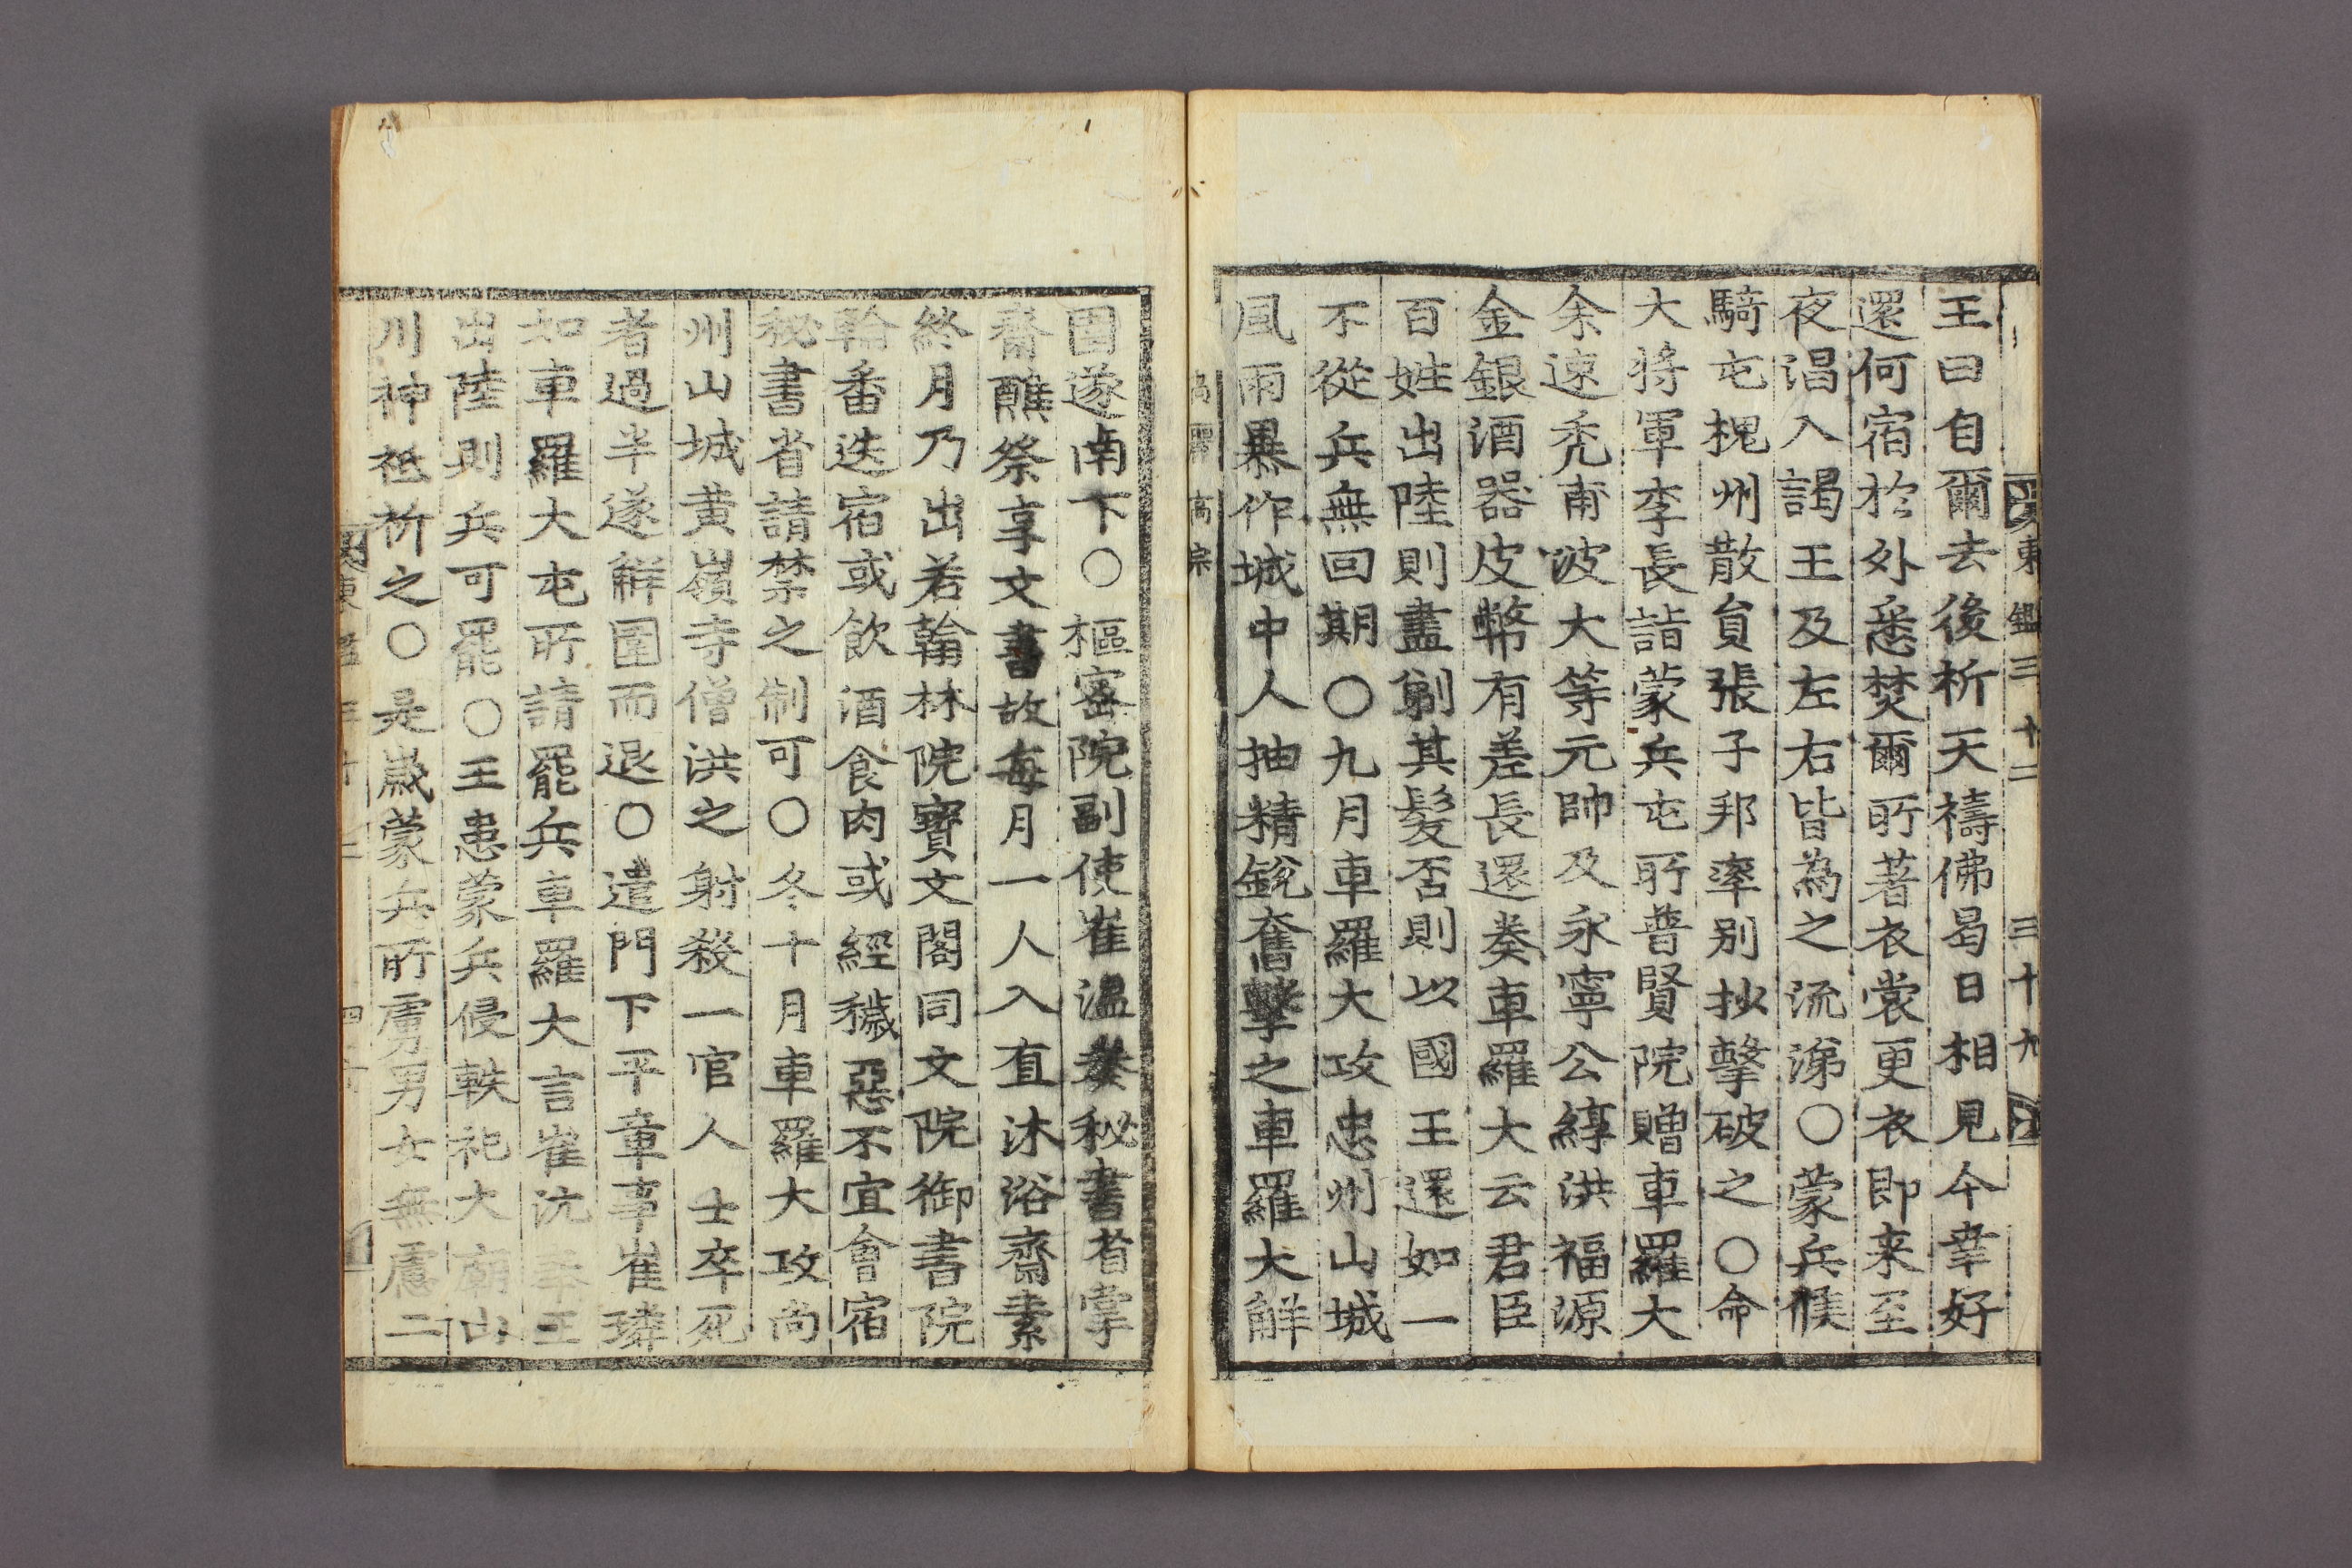 東鑑三十二 三十九
王曰自爾去後祈天禱佛曷日相見今幸好
還何宿於外悉焚爾所著衣裳更衣即来至
夜淐入謁王及左右皆為之流涕○蒙兵候
騎屯槐州散負張子邦率别抄擊破之○命
大將軍李長詣蒙兵屯所普賢院贈車羅大
余速禿甫波大等元帥及永寧公綧洪福源
金銀酒器皮幣有差長還奏車羅大云君臣
百姓出陸則盡剃其髮否則以國王還如一
不從兵無回期○九月車羅大攻忠州山城
風雨暴作城中人抽精銳奮擊之車羅大解
高麗 高宗
圍遂南下○樞密院副使崔溫奏秘書省掌
齋醮祭享文書故每月一人入直沐浴齋素
終月乃出若翰林院寶文閣同文院御書院
輪番迭宿或飲酒食肉或經穢惡不宜會宿
秘書省請禁之制可○冬十月車羅大攻尚
州山城黄嶺寺僧洪之射殺一官人士卒死
者過半遂解圍而退○遣門下平章事崔璘
如車羅大屯所請罷兵車羅大言崔沆奉王
出陸則兵可罷○王患蒙兵侵軼祀大廟山
川神祗祈之○是歲蒙兵所虜男女無慮二
東鑑三十二 四十